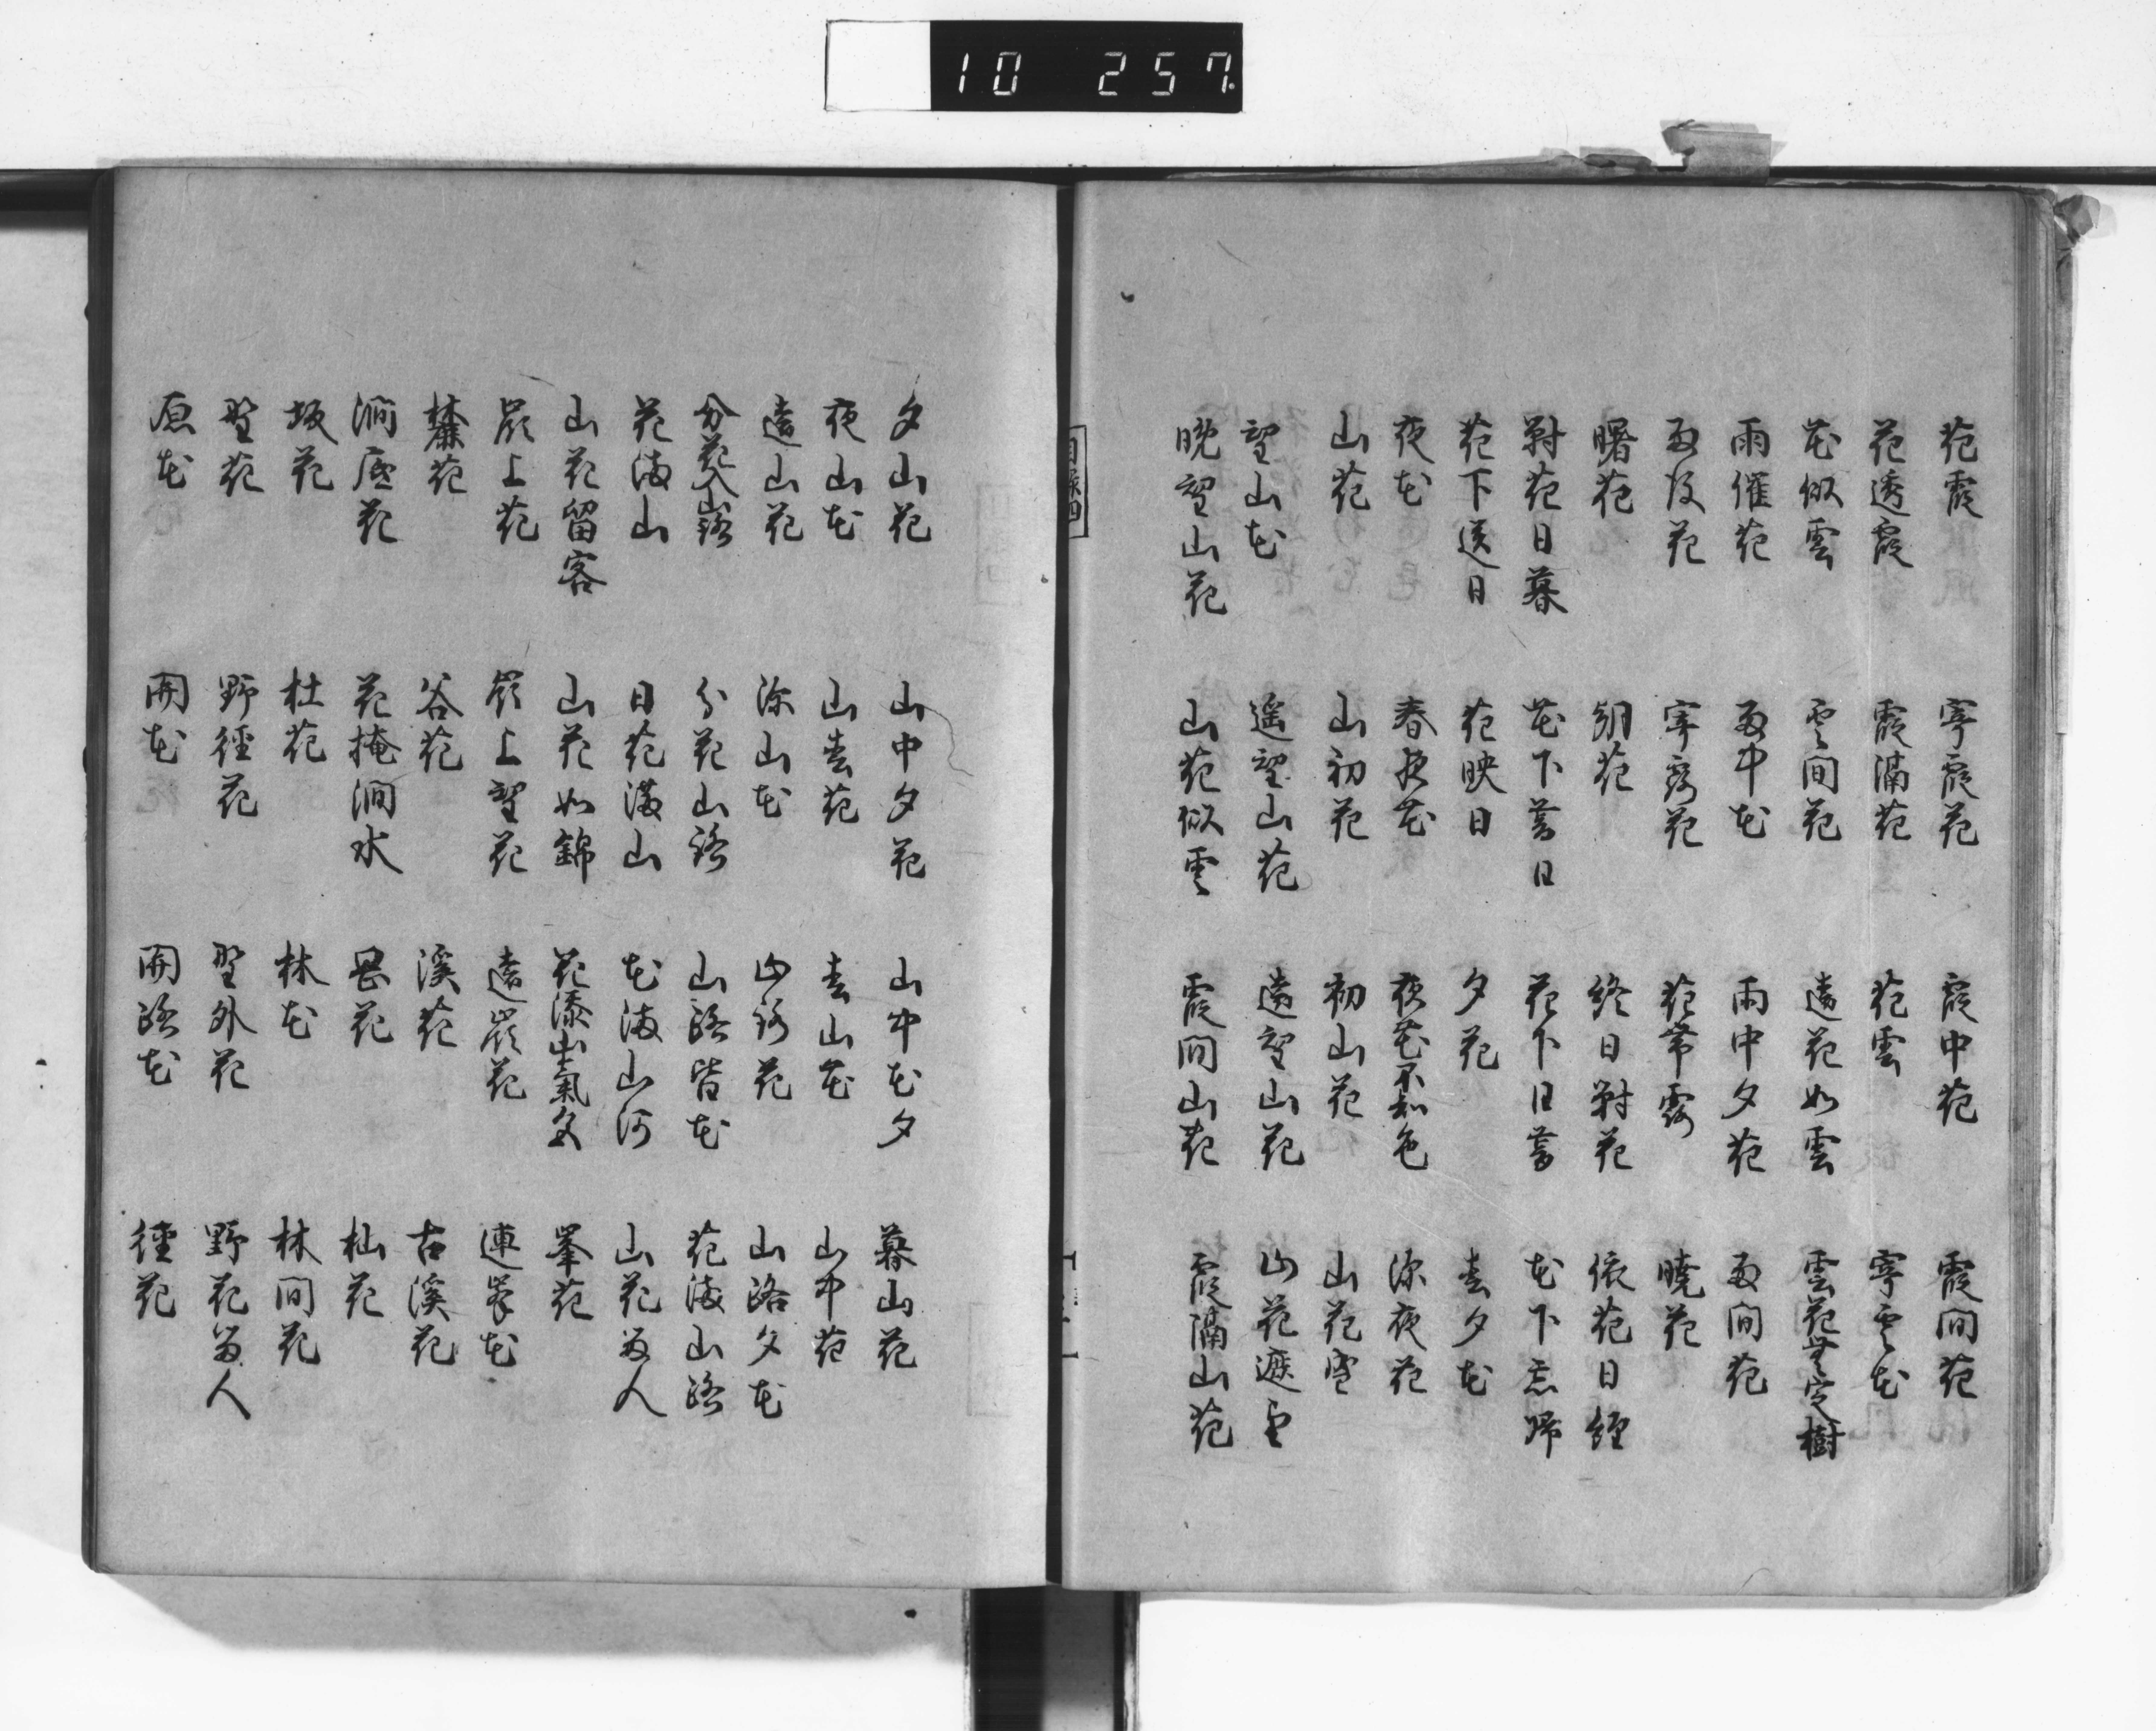 10 257.
花霞 寄霞花 霞中花 霞間花
花透霞 霞隔花 花雲 寄雲花
花似雲 雲間花 遠花如雲 雲花無定樹
雨催花 雨中花 雨中夕花 雨間花
雨後花 寄露花 花帯露 暁花
曙花 朝花 終日対花 依花日経
対花日暮 花下暮日 花下日暮 花下忘帰
花下送日 花映日 夕花 春夕花
夜花 春夜花 夜花不知色 深夜花
山花 山初花 初山花 山花盛
望山花 遥望山花 遠望山花 山花遮望
晩望山花 山花似雲 霞間山花 霞隔山花
目録四
夕山花 山中夕花 山中花夕 暮山花
夜山花 山春花 春山花 山中花
遠山花 深山花 山路花 山路夕花
分花入山路 分花山路 山路皆花 花満山路
花満山 日花満山 花満山河 山花留人
山花留客 山花如錦 花添山気色 峯花
嶺上花 嶺上望花 遠嶺花 連峯花
麓花 谷花 渓花 古渓花
澗底花 花掩澗水 岡花 杣花
坂花 杜花 林花 林間花
野花 野径花 野外花 野花留人
原花 関花 関路花 径花